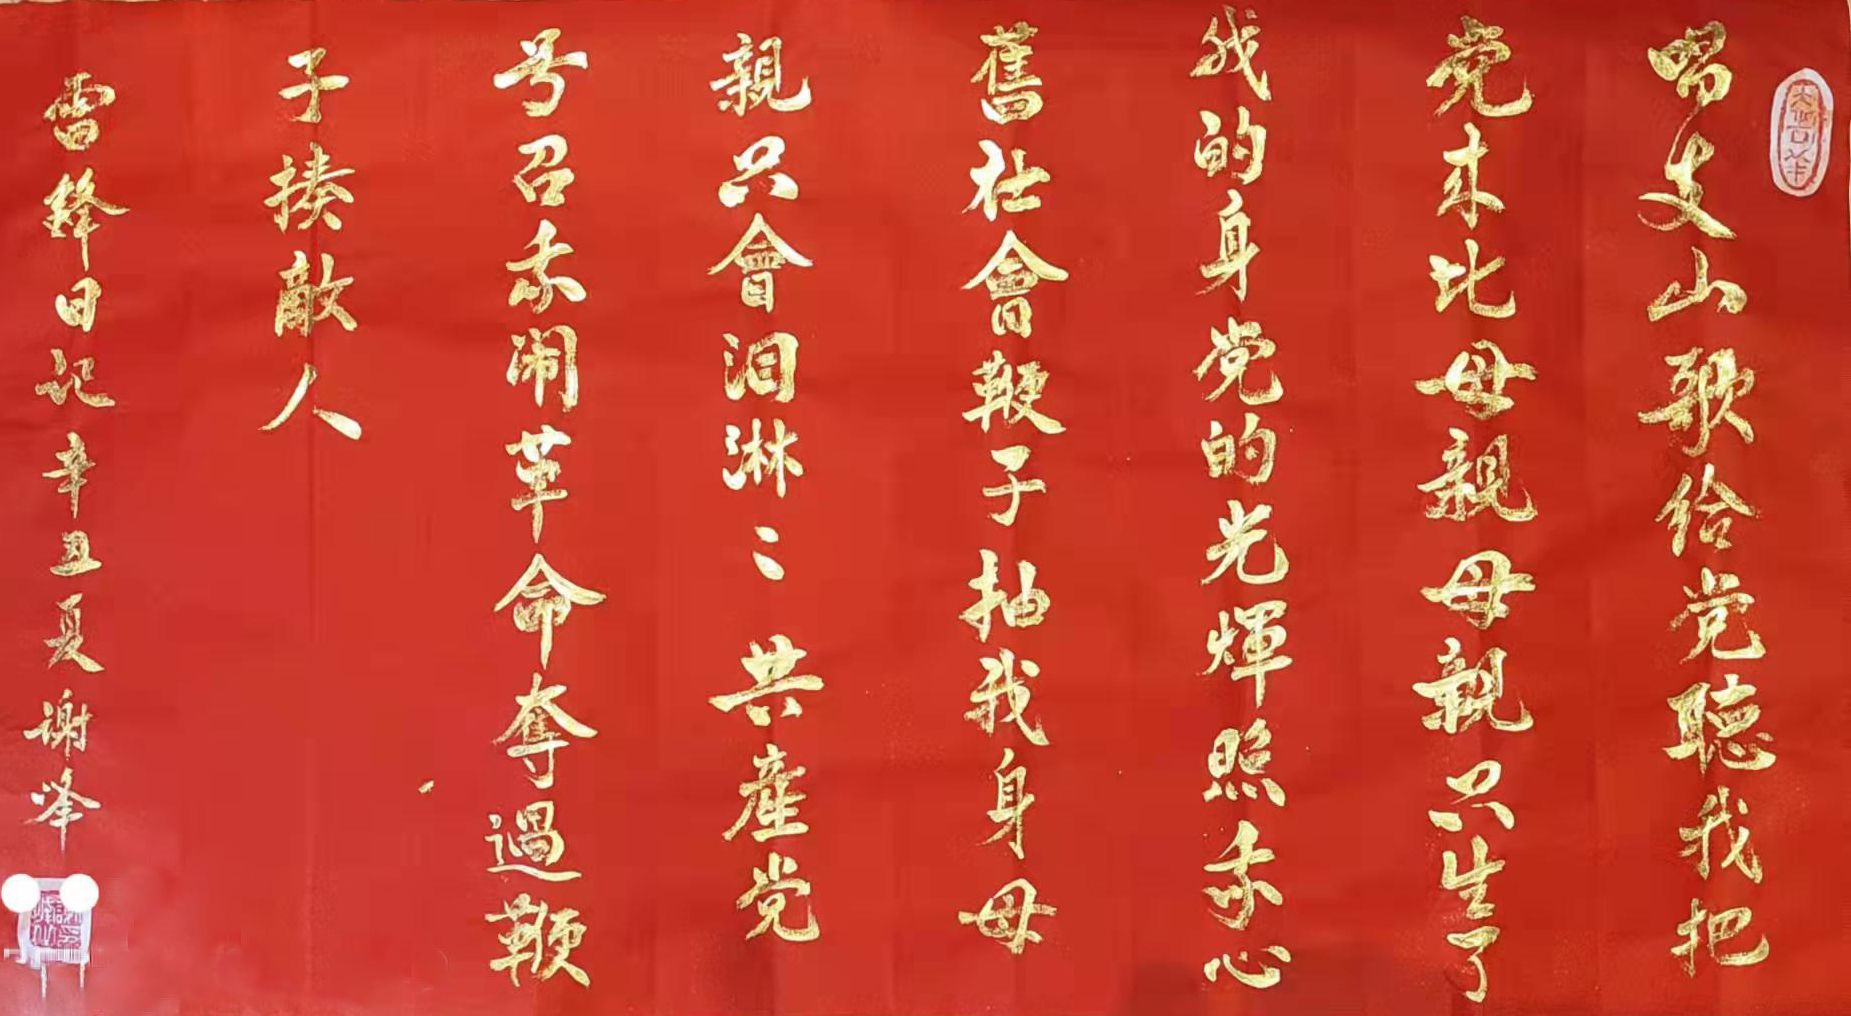 唱支山歌给党聽我把
党来比母親母親只生了
我的身党的光輝照我心
舊社會鞭子抽我身母
親只會泪淋〻共産党
号召我闹革命奪過鞭
子揍敵人
雷鋒日记辛丑夏谢峰